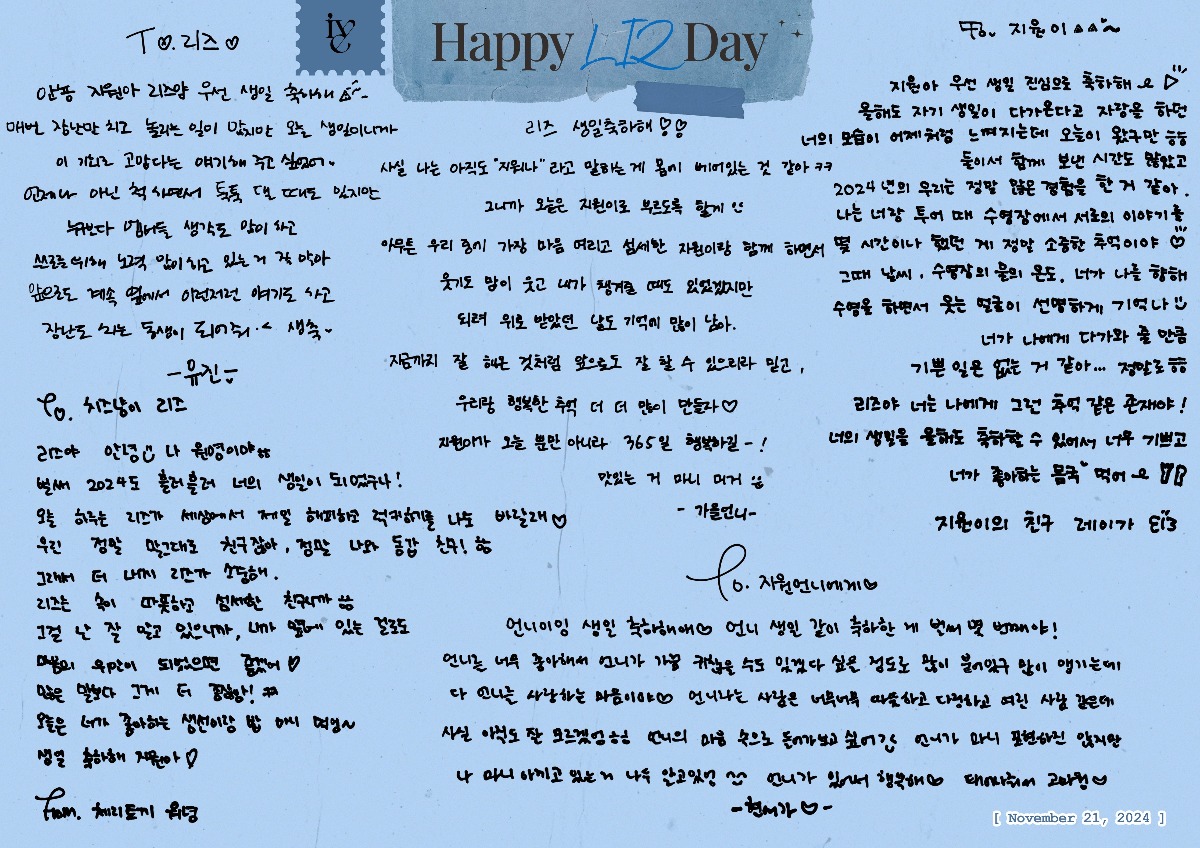 ive
Happy LIZ Day
To. 리즈♡
안뇽 지원아 리즈야 우선 생일 축하해
매번 장난만 치고 놀리는 일이 많지만 오늘 생일이니까
이 기회로 고맙다는 얘기해 주고 싶었어
언제나 아닌 척 하면서 툭툭 댈 때도 있지만
누구보다 멤버들 생각도 많이 하고
스스로 위해 노력 많이 하고 있는 거 잘 알아
앞으로도 계속 옆에서 이런저런 얘기도 하고
장난도 치는 동생이 되어줘 생축
-유진
To. 치즈냥이 리즈
리즈야 안녕 나 원영이야ㅎㅎ
벌써 2024도 흘러흘러 너의 생일이 되었구나!
오늘 하루는 리즈가 세상에서 제일 해피하고 럭키하기를 나도 바랄래♡
우린 정말 말그대로 친구잖아, 정말 나와 동갑 친구! ㅎㅎ
그래서 더 내게 리즈가 소중해.
리즈는 속이 따뜻하고 섬세한 친구니까 ㅎㅎ
그걸 난 잘 알고 있으니까, 내가 옆에 있는 걸로도
마음의 위안이 되었으면 좋겠어♡
많은 말보다 그게 더 중요하당! ㅋㅋ
오늘은 너가 좋아하는 생선이랑 밥 마니 먹엉~
생일 축하해 지원아♡
From. 체리토끼 워녕
리즈 생일축하해♡♡
사실 나는 아직도 "지원나" 라고 말하는 게 몸이 베어있는 것 같아 ㅋㅋ
그니까 오늘은 지원이로 부르도록 할게
아무튼 우리 중에 가장 마음 여리고 섬세한 지원이랑 함께 하면서
웃기도 많이 웃고 내가 챙겨줄 때도 있었겠지만
되려 위로 받았던 날도 기억에 많이 남아.
지금까지 잘 해온 것처럼 앞으로도 잘 할 수 있으리라 믿고,
우리랑 행복한 추억 더 더 많이 만들자♡
지원이가 오늘 뿐만 아니라 365일 행복하길-!
맛있는 거 마니 머거
- 가을언니-
To. 지원이
지원아 우선 생일 진심으로 축하해
올해도 자기 생일이 다가온다고 자랑을 하던
너의 모습이 어제처럼 느껴지는데 오늘이 왔구만 ㅎㅎ
둘이서 함께 보낸 시간도 많았고
2024년의 우리는 정말 많은 경험을 한 거 같아.
나는 너랑 투어 때 수영장에서 서로의 이야기를
몇 시간이나 했던 게 정말 소중한 추억이야♡
그때 날씨, 수영장의 물의 온도, 너가 나를 향해
수영을 하면서 웃는 얼굴이 선명하게 기억나
너가 나에게 다가와 줄 만큼
기쁜 일은 없는 거 같아... 정말로ㅎㅎ
리즈야 너는 나에게 그런 추억 같은 존재야!
너의 생일을 올해도 축하할 수 있어서 너무 기쁘고
너가 좋아하는 몸국 먹어
지원이의 친구 레이가
To. 지원언니에게♡
언니이잉 생일 축하해애♡ 언니 생일 같이 축하한 게 벌써 몇 번째야!
언니를 너무 좋아해서 언니가 가끔 귀찮을 수도 있겠다 싶은 정도로 많이 붙어있구 많이 앵기는데
다 언니를 사랑하는 마음이야♡ 언니라는 사람은 너무너무 따뜻하고 다정하고 여린 사람 같은데
사실 아직도 잘 모르겠엉ㅎㅎ 언니의 마음 속으로 들어가보고 싶어 언니가 마니 표현하진 않지만
나 마니 아끼고 있는거 너무 안고있엉 언니가 있어서 행복해♡ 태어나줘서 고마웡♡
-현서가♡-
[ November 21, 2024 ]